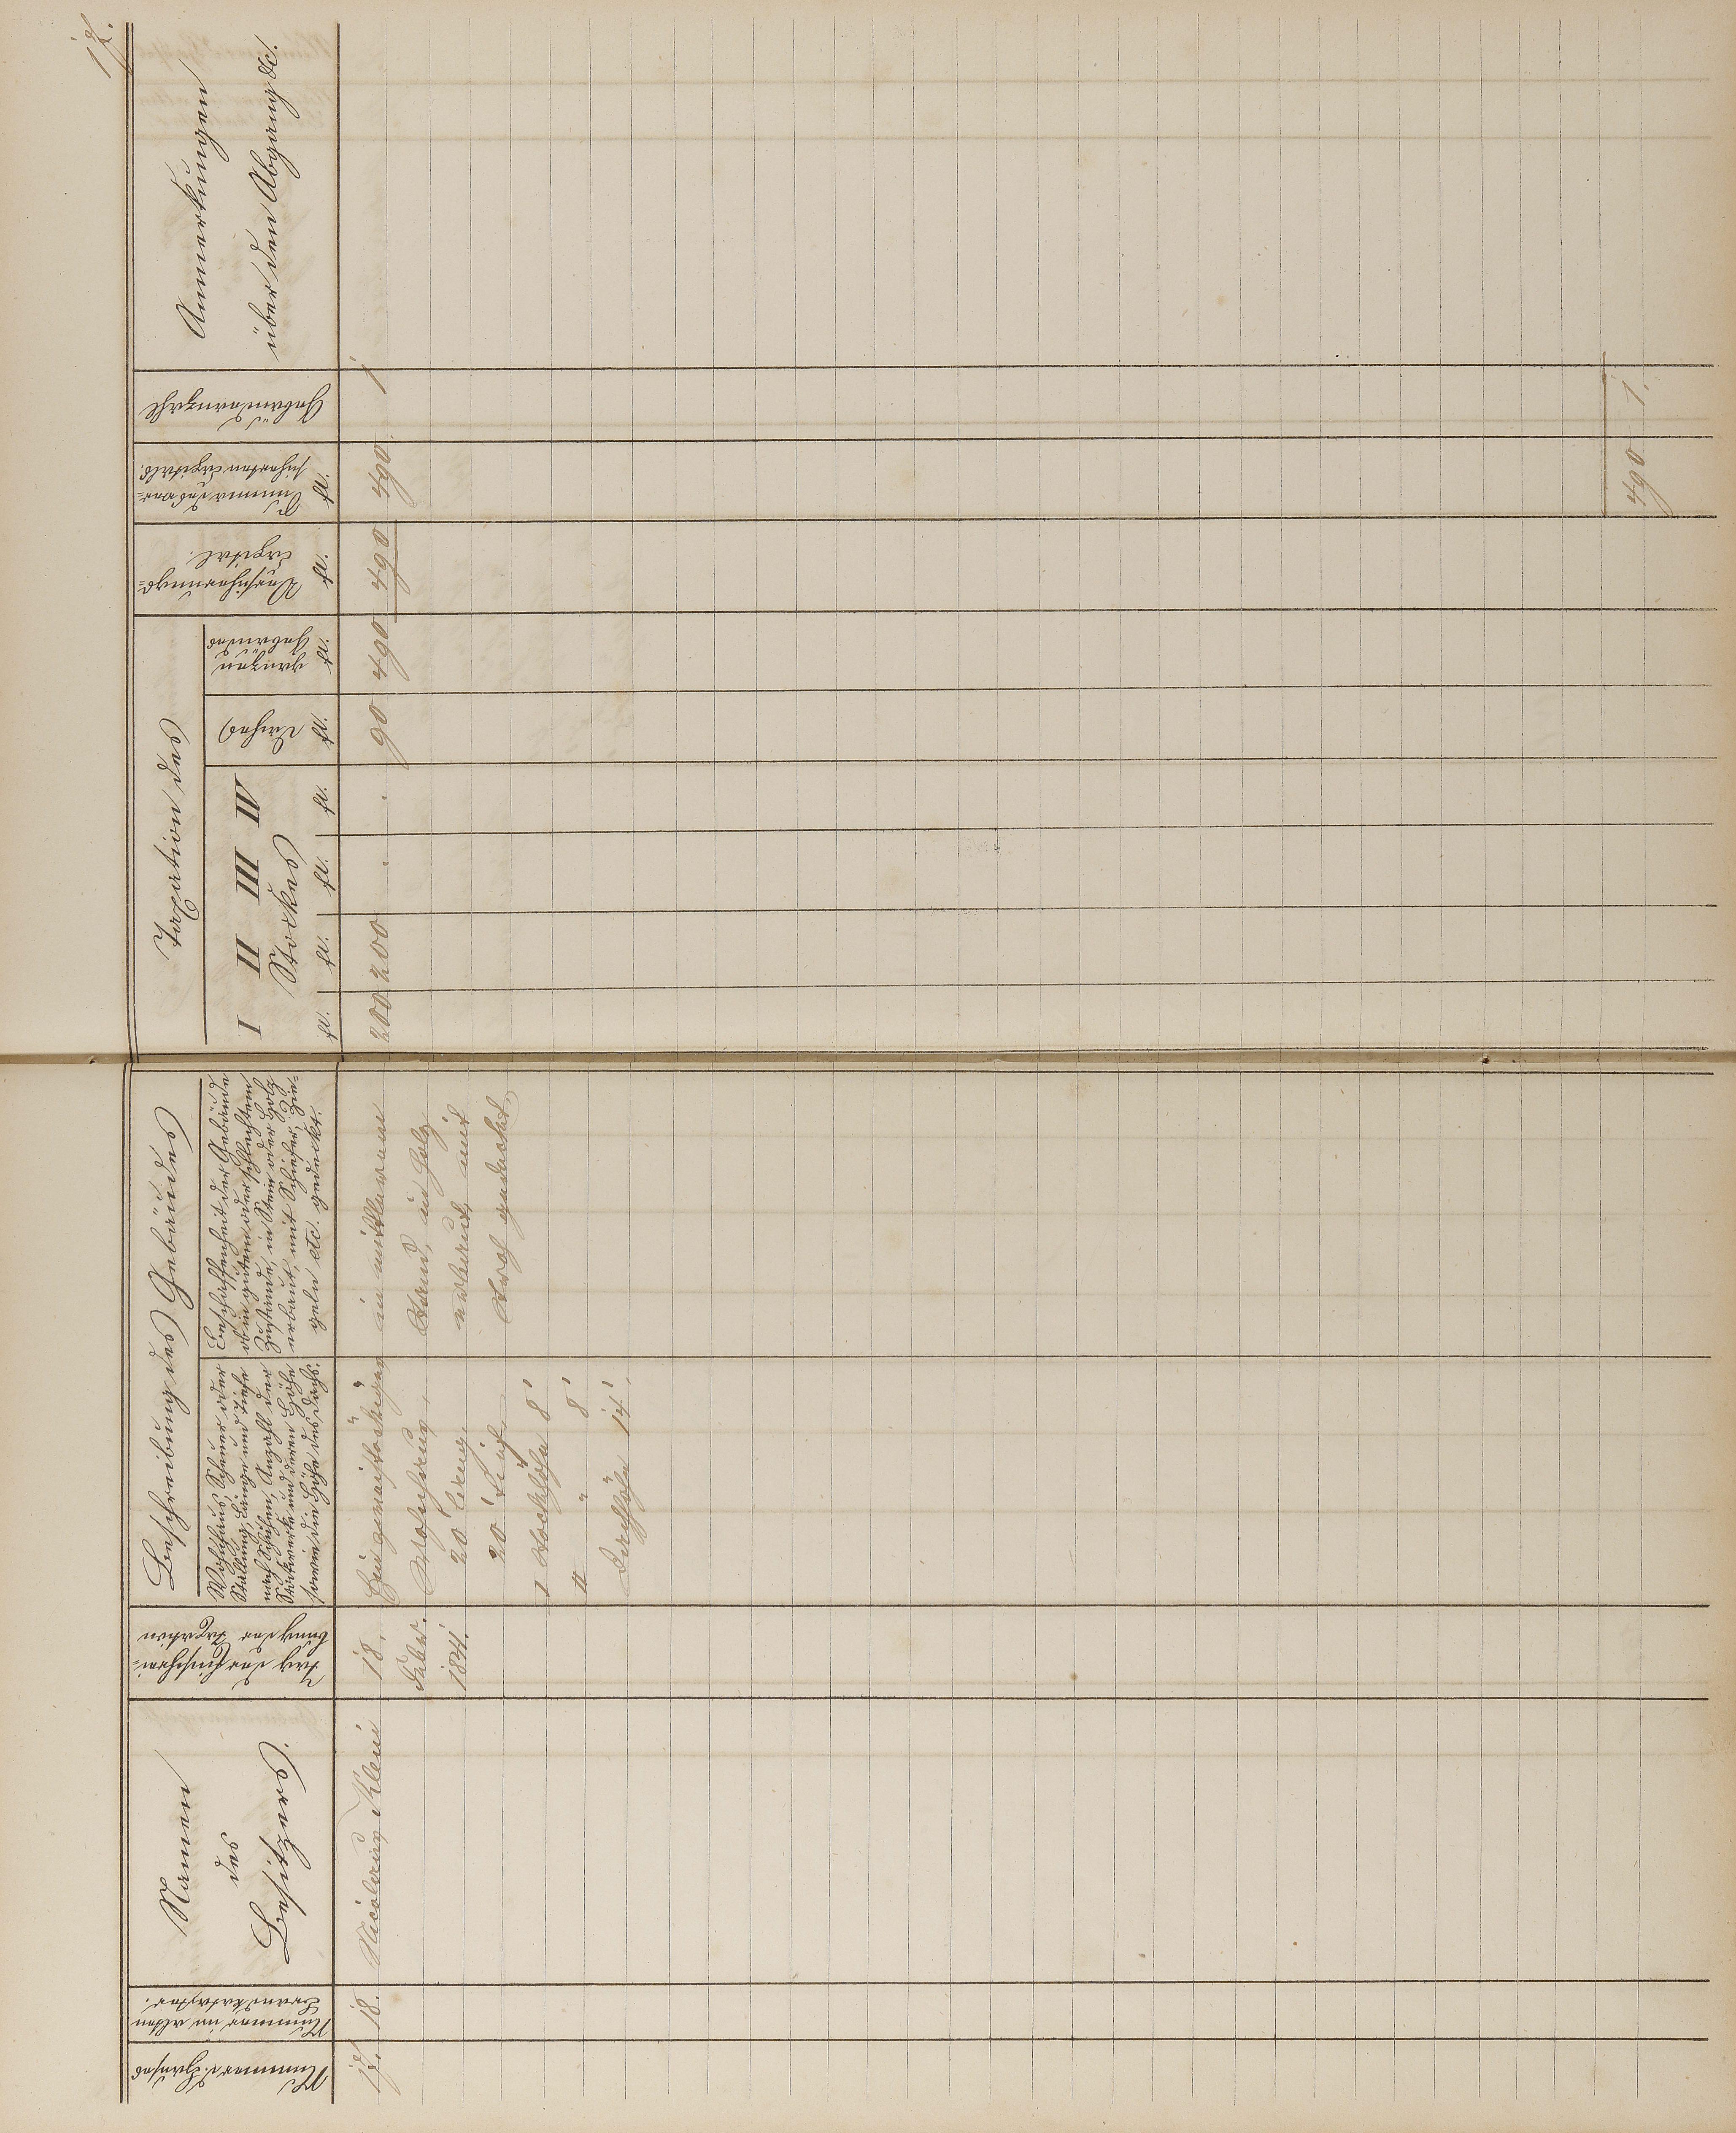 17.
Nummer d. Hauses
Nummer im alten
Brandkataster.
Namen
des
Besitzers.
Tag der Einschrei=
bung der Taxation
Beschreibung des Gebäudes
Wohnhaus, Scheuer oder
Stallung, Länge und Tiefe
nach Schuhen, Anzahl der
Stockwerke und deren Höhe
sowie die Höhe des Dachs.
Beschaffenheit der Gebäude
ob in gutem oder schlechtem
Zustande, in Stein oder Holz
erbaut, mit Schiefer, Zie=
geln etc. gedeckt.
Taxation des
I II III IV
Stockes
fl. fl. fl. fl.
Daches
fl.
ganzen
Gebäudes
fl.
Versicherungs=
Capital.
fl.
Summa des ver=
sicherten Capitals.
fl.
Gebäudeanzahl
Anmerkungen
über den Abgang &c.
17. 18. Nicolaus Klein
18.
Febr.
1841.
Ein zweistöckiges
Wohnhaus,
20' lang,
20' tief
I Stockhöhe 8'
II " 8'
Dachhöhe 14'.
in mittlerem
Stand, in Holz
erbaut, mit
Stroh gedeckt,
200 200 . . 90 490 490 490. 1
490 1.